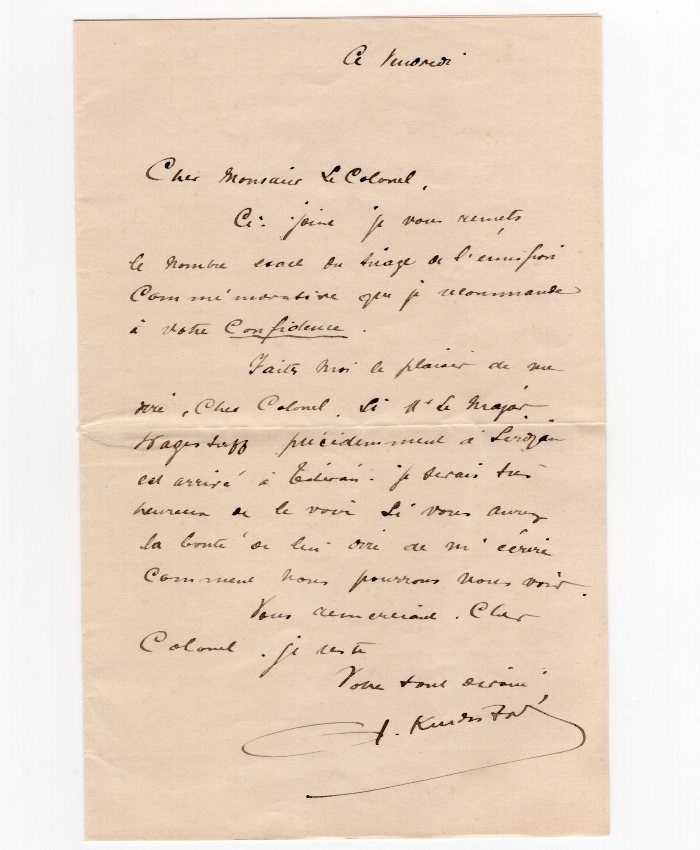 Ce Vendredi
Cher Monsieur Le Colonel,
Ci-joint je vous remets
le nombre exact du tirage de l'emission
Commémorative que je recommande
à votre Confidence.
Faites moi le plaisir de me
dire, Cher Colonel, Si Mr Le Major
Wagestaff précédemment à Sirdjan
est arrivé à Téhéran. je serais très
heureux de le voir Si vous aurez
la bonté de lui dire de m'écrire
Comment nous pourrons nous voir.
Vous remerciant, Cher
Colonel, je reste
Votre tout dévoué,